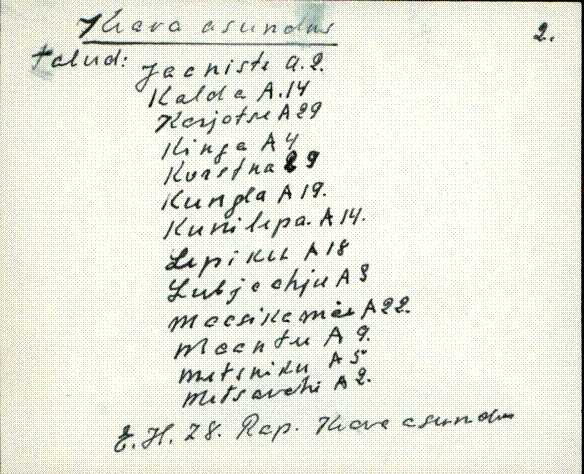 Ikava asundus
2.
talud:
Jaaniste A. 2.
Kalda A. 14
Karjotse A 29
Kinga A 4
Kurstna 29
Kungla A 19.
Kunilepa. A 14.
Lepiku A 18
Lubjaahju A 3
Maasikamäe A 22.
Maantee A 9.
Metsniku A 5
Metsavahi A 2.
E. H. 28. Rap. Kava asundus